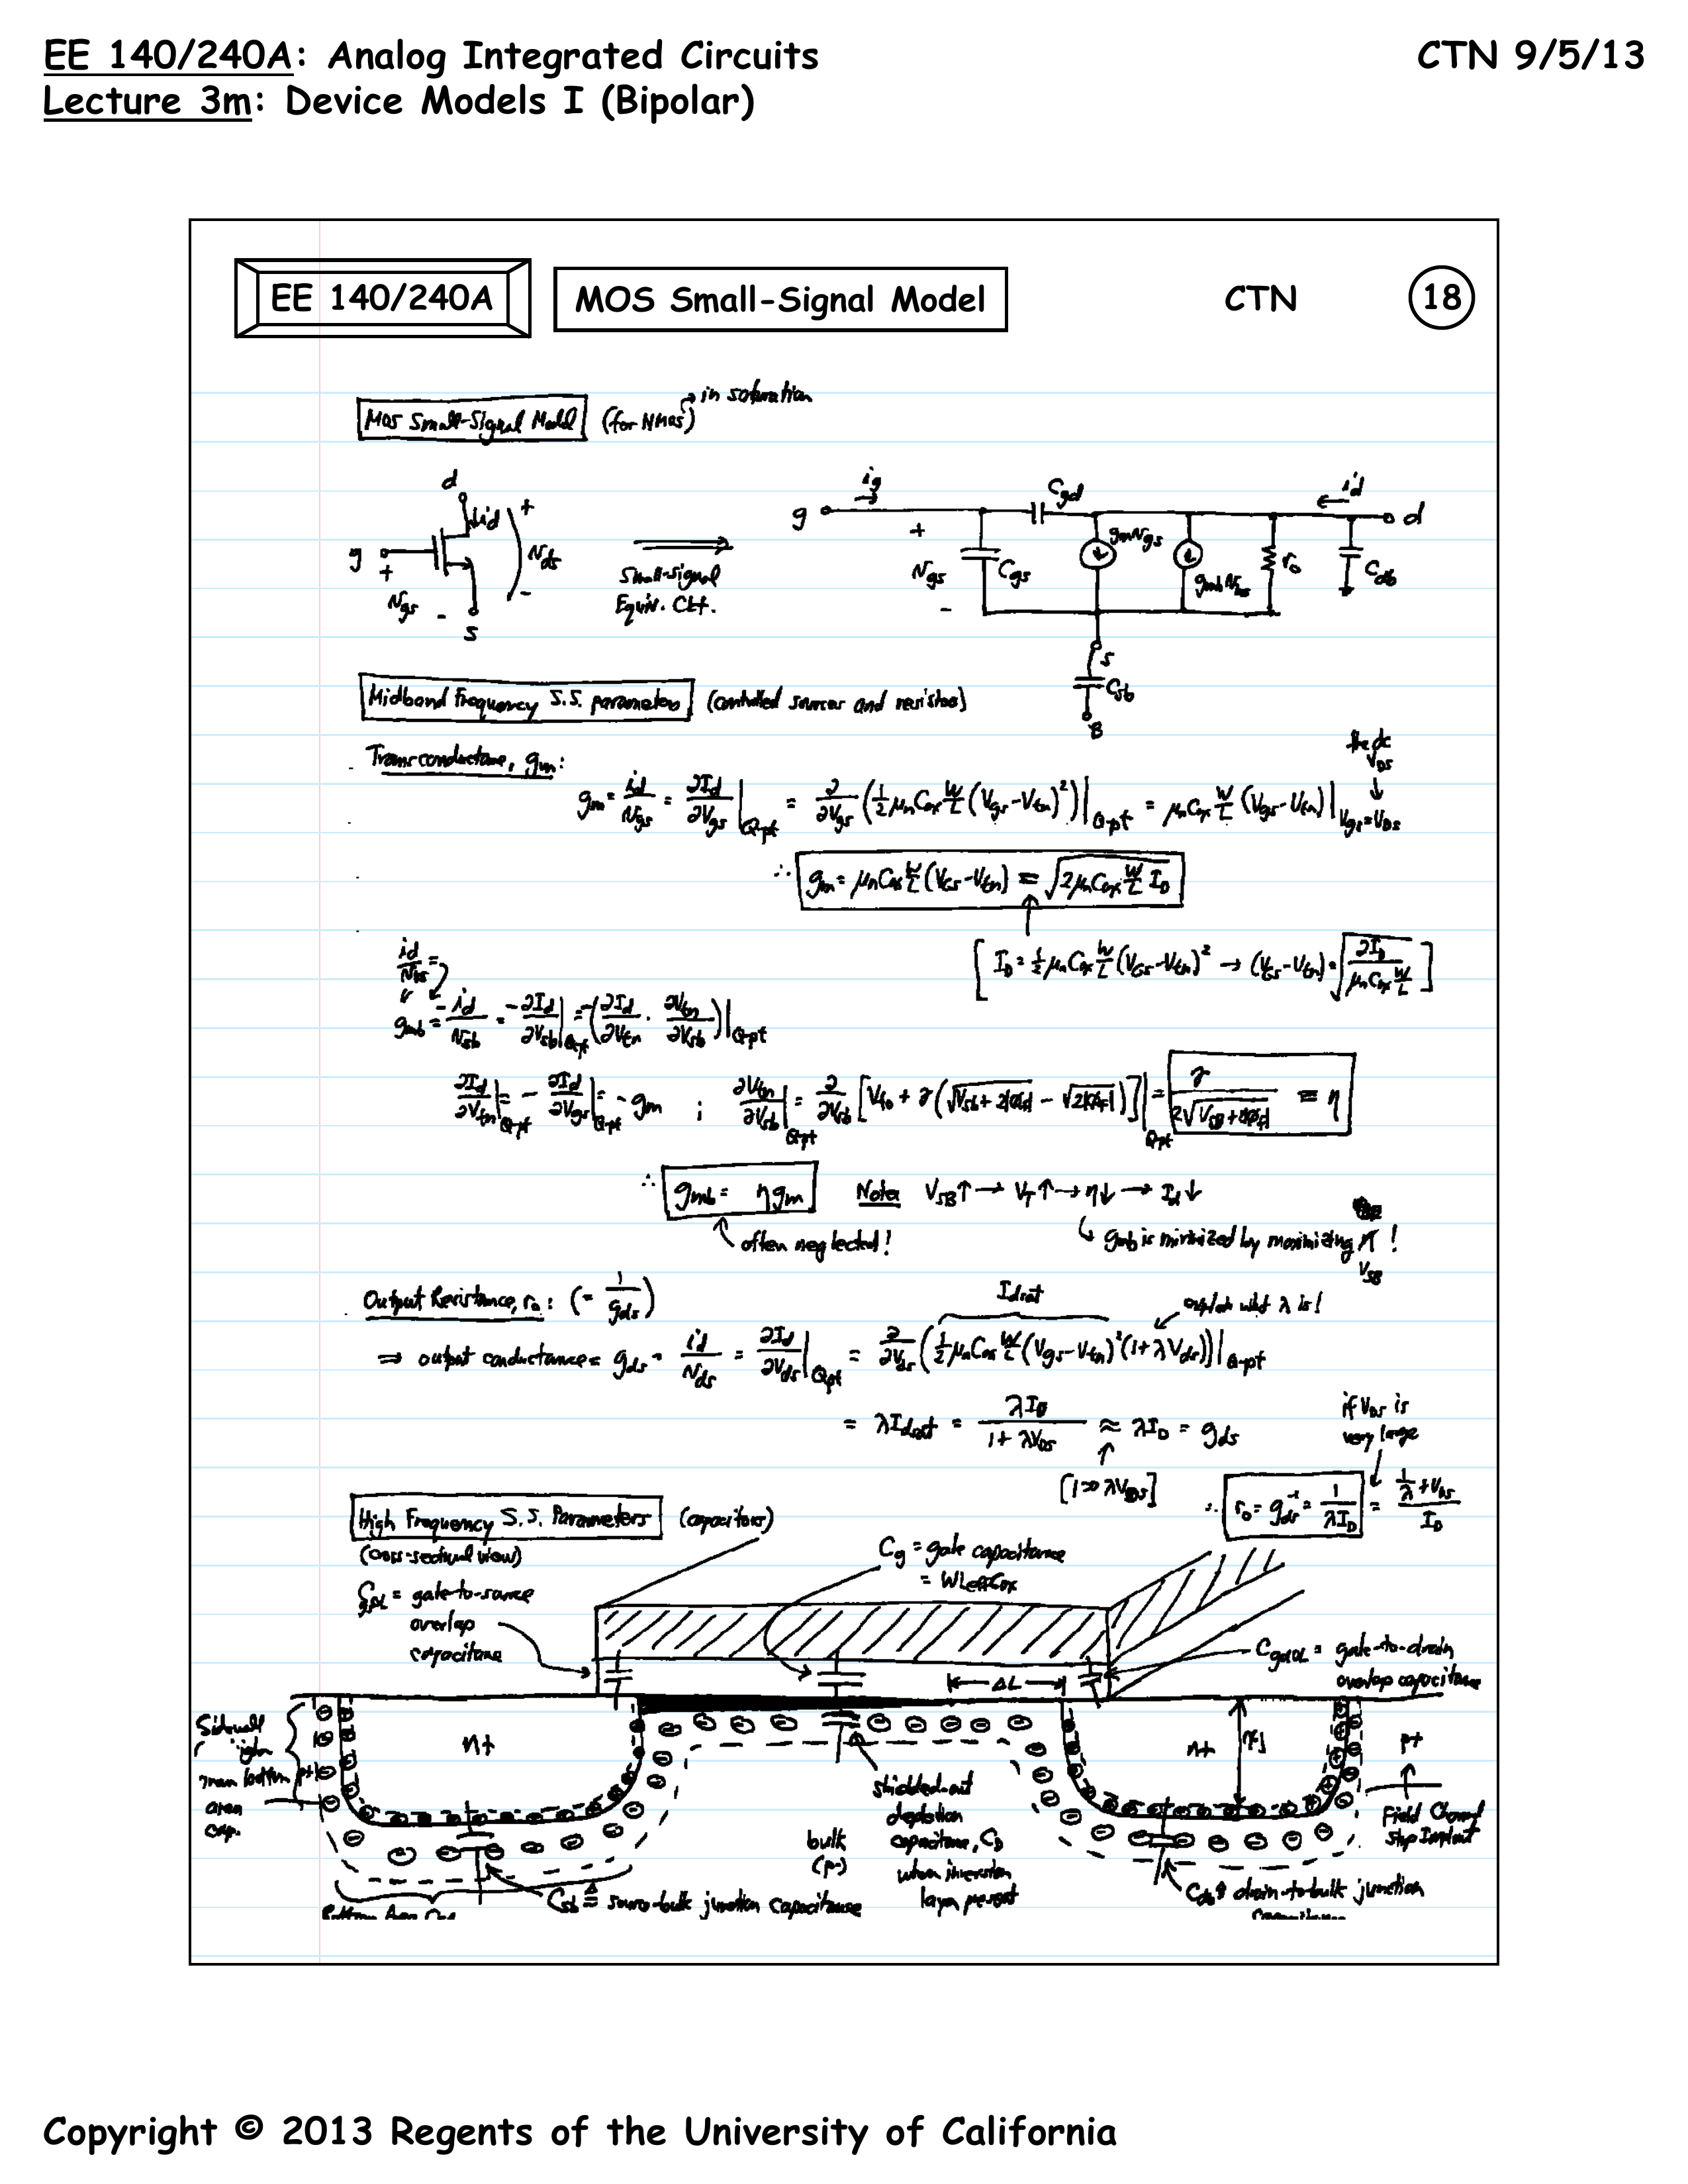 EE 140/240A: Analog Integrated Circuits CTN 9/5/13
Lecture 3m: Device Models I (Bipolar)
EE 140/240A MOS Small-Signal Model CTN 18
MOS Small-Signal Model (for NMOS) → in saturation
d
id
g + vgs - s
+ vds -
Small-signal
Equiv. Ckt.
g ig + vgs - Cgs Cgd gmvgs gmbvbs ro id d Cdb
s
Csb
B
Midband Frequency S.S. parameters (controlled sources and resistors)
Transconductance, gm:
the dc
VDS
gm = id/vgs = ∂Id/∂Vgs |Q-pt = ∂/∂Vgs (½ μnCox W/L (Vgs-Vtn)²)|Q-pt = μnCox W/L (Vgs-Vtn)|Vgs=VDS
∴ gm = μnCox W/L (VGS-Vtn) = √(2μnCox W/L ID)
[ID = ½ μnCox W/L (VGS-Vtn)² → (VGS-Vtn) = √(2ID / μnCox W/L)]
id/vbs =
gmb = -id/vsb = -∂Id/∂Vsb |Q-pt = -(∂Id/∂Vtn · ∂Vtn/∂Vsb)|Q-pt
∂Id/∂Vtn |Q-pt = -∂Id/∂Vgs |Q-pt = -gm ; ∂Vtn/∂Vsb |Q-pt = ∂/∂Vsb [Vt0 + γ(√(Vsb+2|φf|) - √(2|φf|))]|Q-pt = γ / 2√(VSB+2|φf|) ≡ η
∴ gmb = ηgm Note: VSB↑ → VT↑ → η↓ → Id↓
often neglected! gmb is minimized by maximizing !
VSB
Output Resistance, ro: (= 1/gds)
Idsat
explain what λ is!
⇒ output conductance = gds = id/vds = ∂Id/∂Vds |Q-pt = ∂/∂Vds (½ μnCox W/L (Vgs-Vtn)² (1+λVds))|Q-pt
= λIdsat = λID / 1+λVDS ≈ λID = gds
if VDS is
very large
[1>>λVDS]
∴ ro = gds⁻¹ = 1/λID = (1/λ + VDS)/ID
High Frequency S.S. Parameters (capacitors)
(cross-sectional view)
CgsOL = gate-to-source
overlap
capacitance
Cg = gate capacitance
= WLeffCox
CgdOL = gate-to-drain
overlap capacitance
ΔL
Sidewall
area
cap.
n+
n+
xj
p+
Field Channel
Stop Implant
shielded-out
depletion
capacitance, CD
when inversion
layer present
bulk
(p-)
Csb ≜ source-bulk junction capacitance
Cdb ≜ drain-to-bulk junction
capacitance
Bottom Area Cap
Copyright © 2013 Regents of the University of California